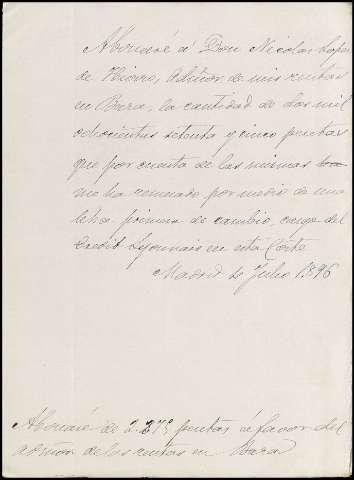 Abonaré á Don Nicolas Lopez
de Hierro, Admor de mis rentas
en Baza, la cantidad de dos mil
ochocientas setenta y cinco pesetas
que por cuenta de las mismas
me ha remesado por medio de una
letra primera de cambio, cargo del
Credit Lyonnais en esta Corte
Madrid Julio 1896
Abonaré de 2.875 pesetas á favor del
admor de las rentas en Baza